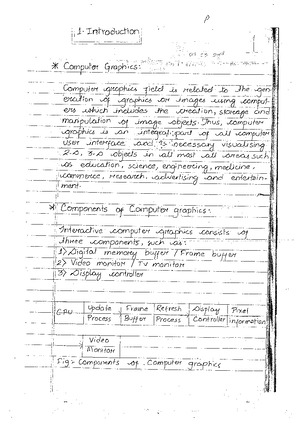 1. Introduction
* Computer Graphics:
Computer graphics field is related to the gen
eration of graphics or images using comput-
ers which includes the creation, storage and
manipulation of image objects. Thus, computer
graphics is an integral part of all computer
user interface and is necessary visualising
2-D, 3-D objects in all most all areas such
as education, science, engineering, medicine,
commerce, research, advertising and entertain-
ment.
* Components of Computer graphics:
Interactive computer graphics consists of
three components, such as:
1) Digital memory buffer / Frame buffer
2) Video monitor / TV monitor
3) Display controller
CPU Update Process Frame Buffer Refresh Process Display Controller Pixel information
Video
Monitor
Fig:- Components of Computer graphics